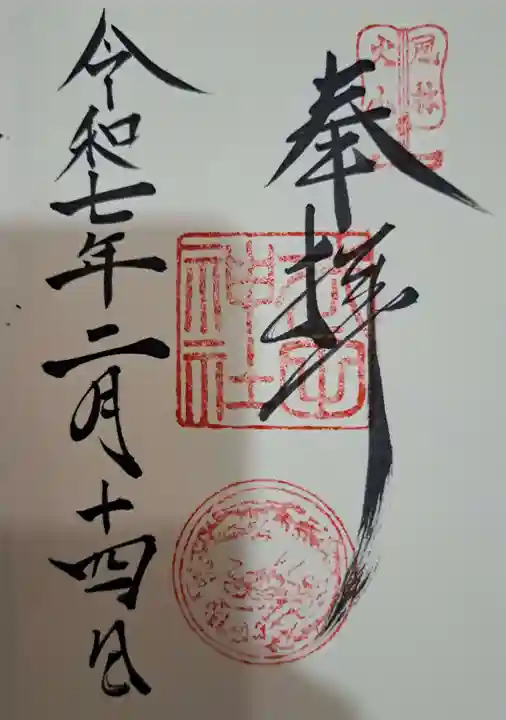 奉拝
風林
火山
神社
令和七年二月十四日